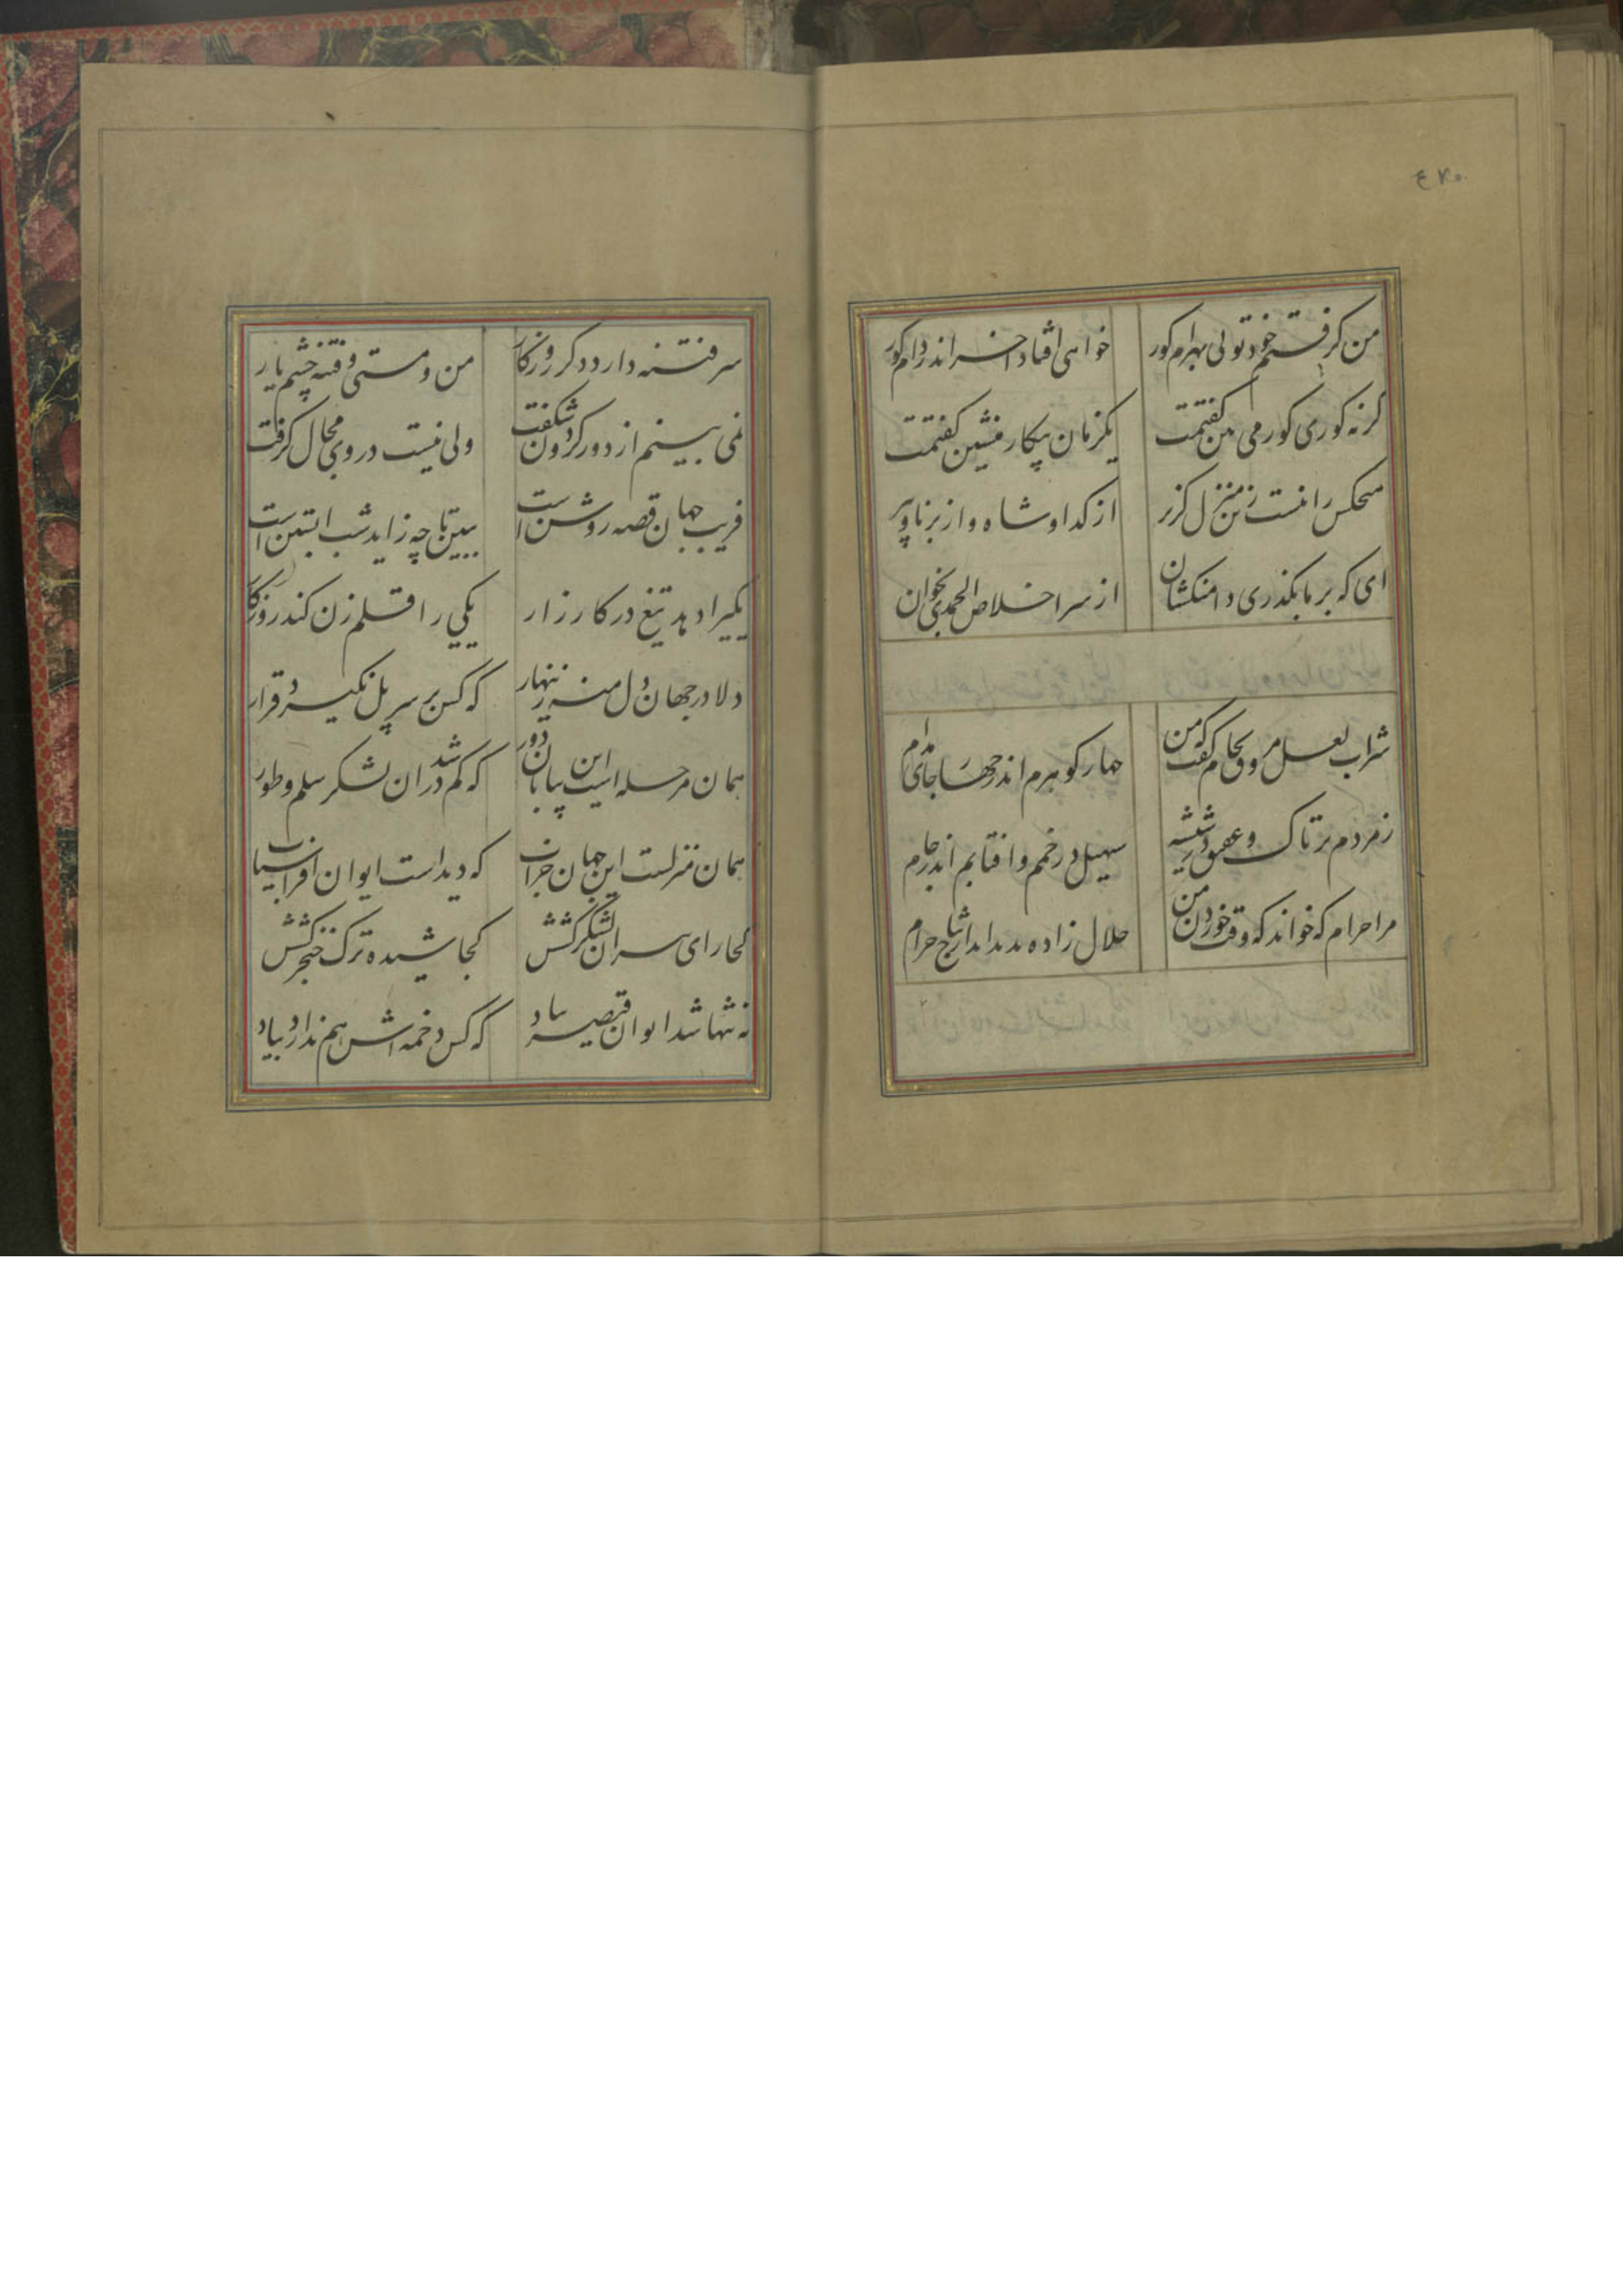 ۴۷۰
من گرفتم خود تویی بهرام گور خواهی افتاد آخر اندر دام گور
گر نه کوری گور می بین گفتمت یکزمان بیکار منشین گفتمت
هیچکس را نیست زین منزل گزیر از گدا و شاه و از برنا و پیر
ای که بر ما بگذری دامنکشان از سر اخلاص الحمدی بخوان
شراب لعل مروق بجام گفت که من چهار گوهرم اندر چهار جای مدام
زمردم بر تاک و عقیق در شیشه سهیل در خمم و آفتابم اندر جام
مرا حرام که خواند که وقت خوردن من حلال زاده
سر فتنه دارد دگر روزگار من و مستی و فتنه چشم یار
همی بینم از دور گردون شگفت ولی نیست در وی مجال گرفت
فریب جهان قصه روشن است ببین تا چه زاید شب آبستن است
یکیرا دهد تیغ در کارزار یکی را قلم زن کند روزگار
دلا در جهان دل منه زینهار که کس بر سر پل نگیرد قرار
همان مرحله است این بیابان دور که گم شد در آن لشکر سلم و طور
همان منزلست این جهان خراب که دیده است ایوان افراسیاب
کجا رای سران لشکر کشش کجا شیده ترک خنجر کشش
نه تنها شد ایوان قیصر بباد که کس دخمه اش هم ندارد بیاد